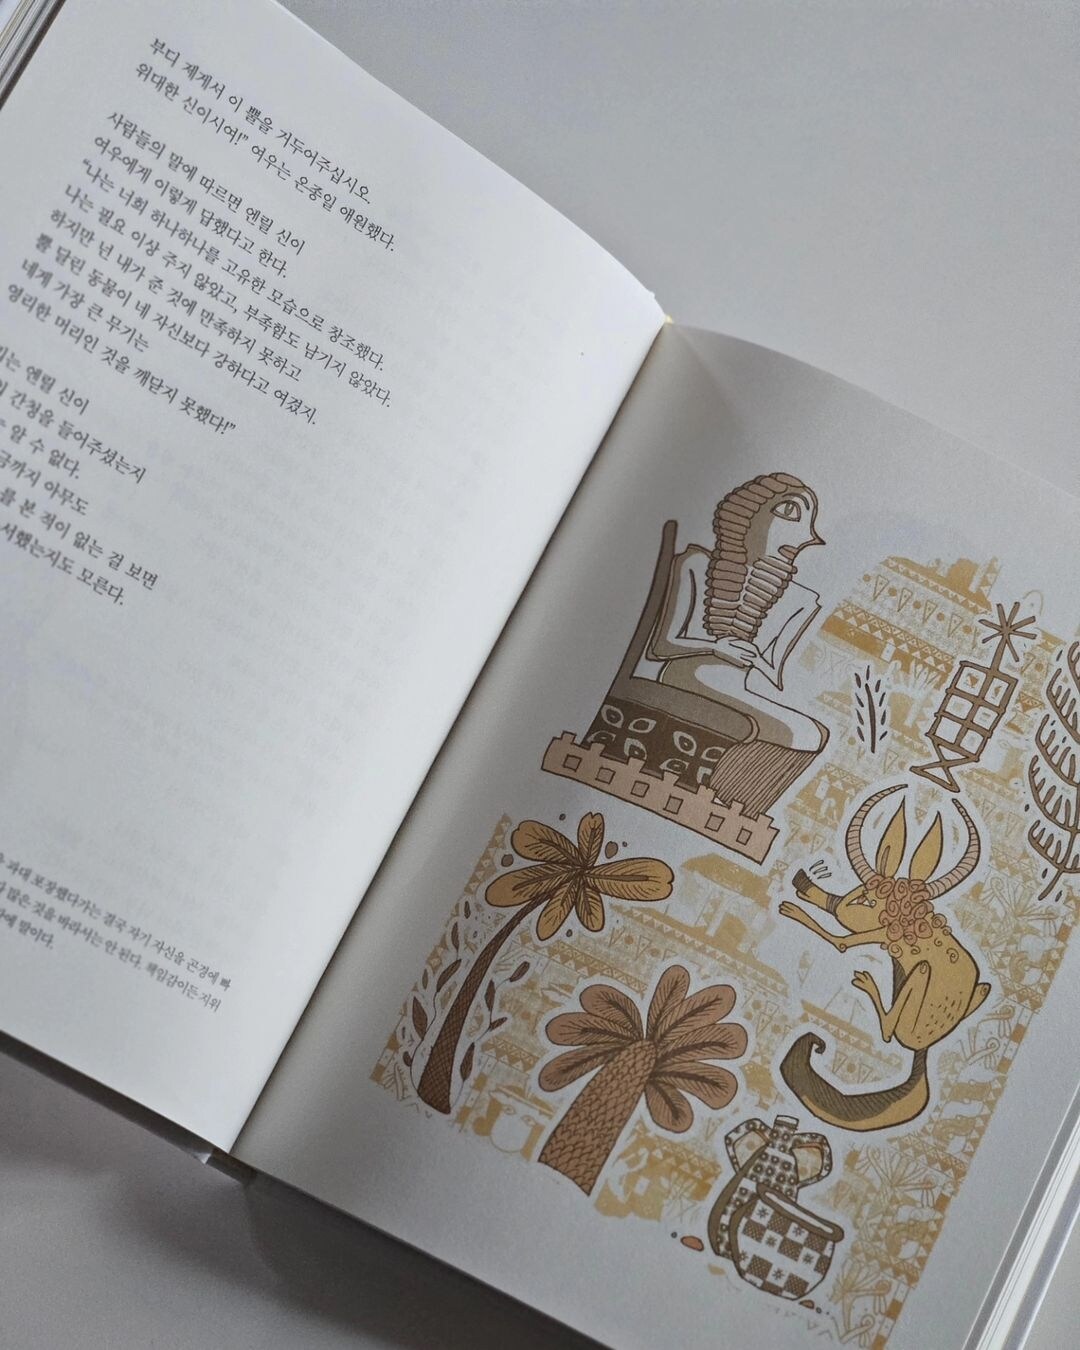 부디 제게서 이 뿔을 거두어주십시오.
위대한 신이시여!” 여우는 온종일 애원했다.
사람들의 말에 따르면 엔릴 신이
여우에게 이렇게 답했다고 한다.
“나는 너희 하나하나를 고유한 모습으로 창조했다.
나는 필요 이상 주지 않았고, 부족함도 남기지 않았다.
하지만 넌 내가 준 것에 만족하지 못하고
뿔 달린 동물이 네 자신보다 강하다고 여겼지.
네게 가장 큰 무기는
영리한 머리인 것을 깨닫지 못했다!”
기는 엔릴 신이
간청을 들어주셨는지
알 수 없다.
금까지 아무도
를 본 적이 없는 걸 보면
서했는지도 모른다.
과대 포장했다가는 결국 자기 자신을 곤경에 빠
많은 것을 바라서는 안 된다. 책임감이든 지위
에 말이다.